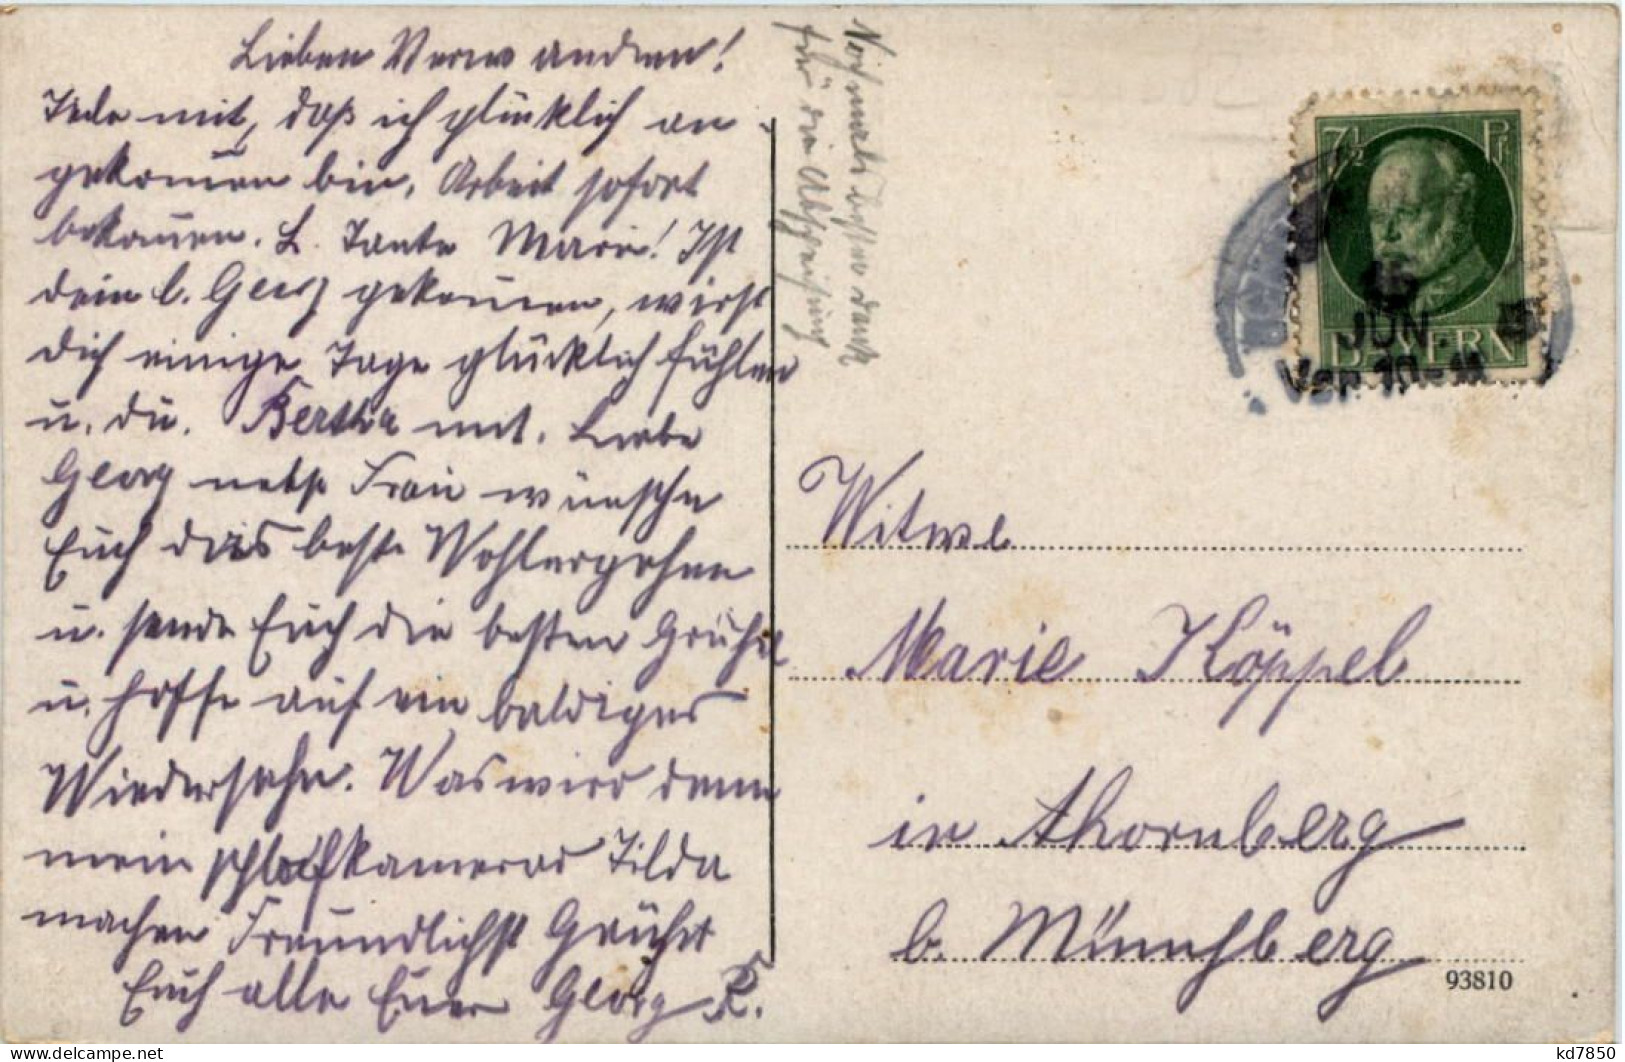 Lieben Verwandten!
Teile mit, daß ich glücklich an-
gekommen bin, Arbeit sofort
bekommen. L. Tante Marie! Ist
dein l. Georg gekommen, wirst
dich einige Tage glücklich fühlen
u. du. Bertha mit. Liebe
Georg nebst Frau wünsche
Euch das beste Wohlergehen
u. sende Euch die besten Grüße
u. hoffe auf ein baldiges
Wiedersehn. Was wird denn
mein Schlafkamerad Tilda
machen Freundlichst Grüßt
Euch alle Euer Georg K.
Nochmals besten Dank
für die Abspeisung
7½ Pf
BAYERN
15
JUN.
Vor. 10-11
Witwe
Marie Köppel
in Ahornberg
b. Münchberg
93810
kd7850